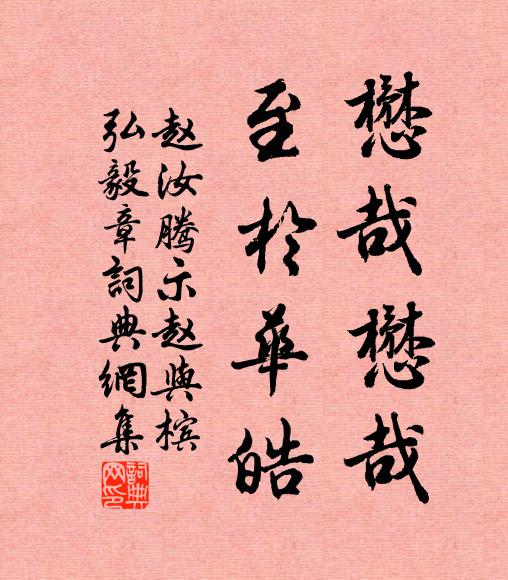 懋哉懋哉
至於華皓
赵汝腾示赵與檳
弘毅章詞典網集
詞典网印